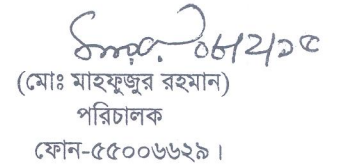 ০৮/২/১৫
(মোঃ মাহফুজুর রহমান)
পরিচালক
ফোন-৫৫০০৬৬২৯।